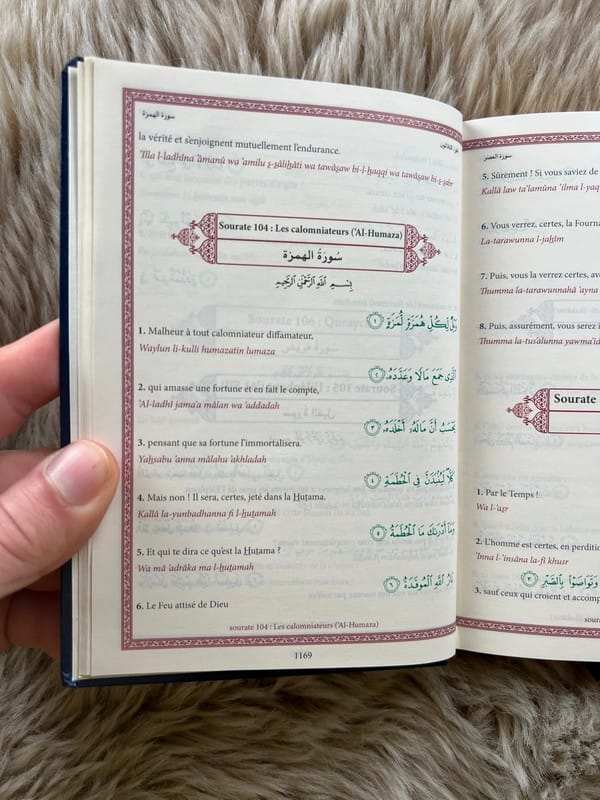 سورة الهمزة
الجزء الثلاثون
la vérité et s'enjoignent mutuellement l'endurance.
'Illa l-ladhîna 'âmanû wa 'amilu ṣ-ṣâliḥâti wa tawâṣaw bi-l-ḥaqqi wa tawâṣaw bi-ṣ-ṣabr
Sourate 104 : Les calomniateurs ('Al-Humaza)
سُورَةُ الهمزة
بِسْمِ اللَّهِ الرَّحْمَٰنِ الرَّحِيمِ
وَيْلٌ لِكُلِّ هُمَزَةٍ لُمَزَةٍ ١
1. Malheur à tout calomniateur diffamateur,
Waylun li-kulli humazatin lumaza
الَّذِي جَمَعَ مَالًا وَعَدَّدَهُ ٢
2. qui amasse une fortune et en fait le compte,
'Al-ladhî jama'a mâlan wa 'addadah
يَحْسَبُ أَنَّ مَالَهُ أَخْلَدَهُ ٣
3. pensant que sa fortune l'immortalisera.
Yaḥsabu 'anna mâlahu 'akhladah
كَلَّا لَيُنْبَذَنَّ فِي الْحُطَمَةِ ٤
4. Mais non ! Il sera, certes, jeté dans la Ḥuṭama.
Kallâ la-yunbadhanna fi l-ḥuṭamah
وَمَا أَدْرَاكَ مَا الْحُطَمَةُ ٥
5. Et qui te dira ce qu'est la Ḥuṭama ?
Wa mâ 'adrâka ma l-ḥuṭamah
نَارُ اللَّهِ الْمُوقَدَةُ ٦
6. Le Feu attisé de Dieu
sourate 104 : Les calomniateurs ('Al-Humaza)
1169
سورة العصر
5. Sûrement ! Si vous saviez de
Kallâ law ta'lamûna 'ilma l-yaq
6. Vous verrez, certes, la Fourna
La-tarawunna l-jaḥîm
7. Puis, vous la verrez certes, av
Thumma la-tarawunnahâ 'ayna
8. Puis, assurément, vous serez i
Thumma la-tus'alunna yawma'id
Sourate
1. Par le Temps !
Wa l-'aṣr
2. L'homme est certes, en perditio
'Inna l-'insâna la-fî khusr
وَتَوَاصَوْا بِالصَّبْرِ ٣
3. sauf ceux qui croient et accomp
soura